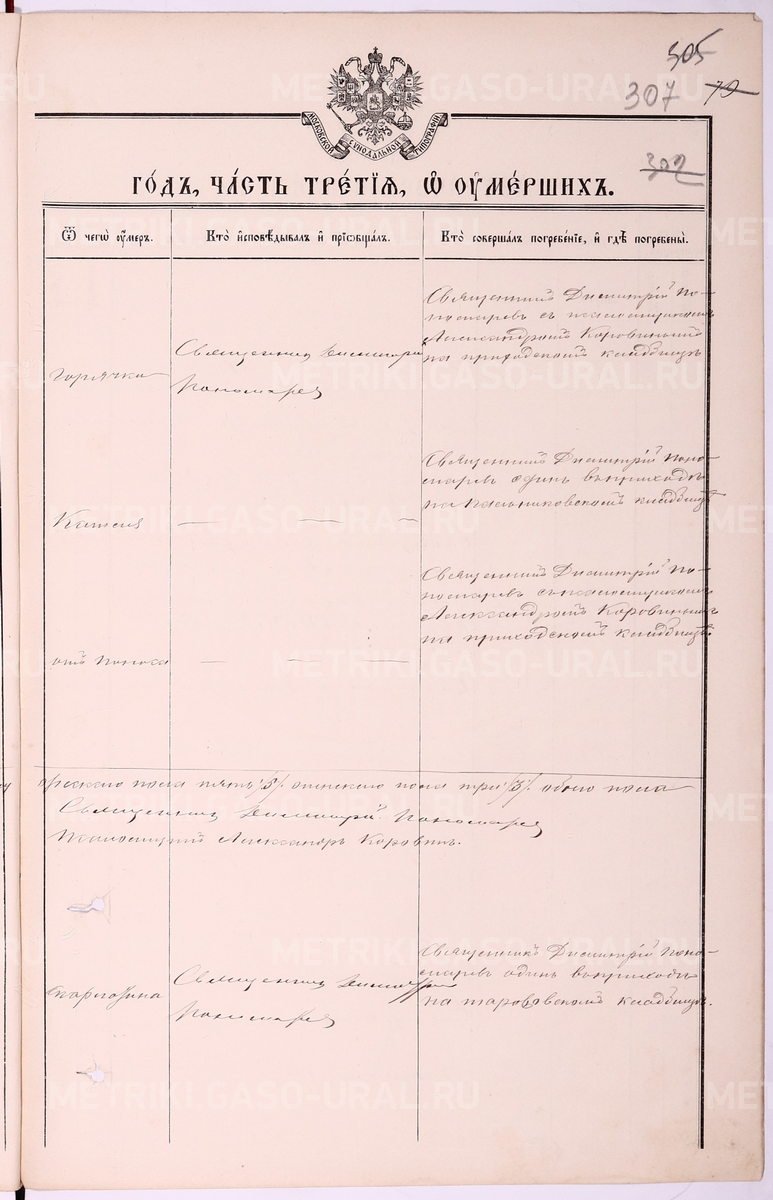 305
307 79
302
МОСКОВСКОЙ СѴНОДАЛЬНОЙ ТИПОГРАФІИ
ГО́ДЪ, ЧА́СТЬ ТРЕ́ТІѦ, Ѡ҆ ОУ҆МЕ́РШИХЪ.
Ѿ чегѡ̀ оу҆́меръ.
Кто̀ и҆сповѣ́дывалъ и҆ прїѡбща́лъ.
Кто̀ соверша́лъ погребе́нїе, и҆ гдѣ̀ погребены̀.
горячка
Священникъ Димитрій
Пономаревъ
Священникъ Димитрій По-
номаревъ съ псаломщикомъ
Александромъ Коровинымъ
на приходскомъ кладбищѣ
Кашель
— — —
Священникъ Димитрій Поно-
маревъ одинъ въ приходѣ
на кладбищѣ
отъ поноса
— — —
Священникъ Димитрій По-
номаревъ съ псаломщикомъ
Александромъ Коровинымъ
на приходскомъ кладбищѣ.
пола пять /5/. женскаго пола три /3/. обоего пола
Священникъ Димитрій Пономаревъ
Псаломщикъ Александръ Коровинъ.
Священникъ Димитрій
Пономаревъ
Священникъ Димитрій Поно-
маревъ одинъ въ приходѣ
на кладбищѣ.
METRIKI.GASO-URAL.RU